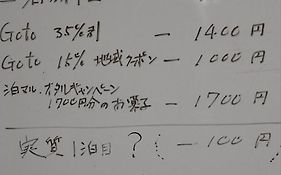 Goto 35%引 - 1400円
Goto 15% 地域クーポン - 1000円
泊マル.オタルキャンペーン
1700円分のお菓子 - 1700円
実質1泊目? - 100円